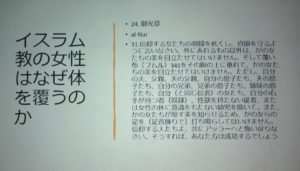 イスラム
教の女性
はなぜ体
を覆うの
か
• 24. 御光章
• al-Nur
• 31.信仰する女たちの視線を低くし、貞節を守るよ
うに言いなさい。外に表われるもの以外は、かの女た
ちの美を目立たせてはいけません。そして覆い布
(フムル)341をその胸の上に垂れて、かの女たち
の美を目立たせてはいけません。ただし、自分の
夫、父親、夫の父親、自分の息子たち、夫の息
子たち、自分の兄弟、兄弟の息子たち、姉妹の息子
たち、自分(と同じ信者)の女たち、自分の右手
が持つ者(奴隷)、性欲を持たない従者、また
は女性の体に意識をもたない幼児を除いて。また
かの女たちが隠す美を知らせるため、かの女らの
足を(足首飾りで)打ち鳴らしてはいけません。
信仰する人たちよ、共にアッラーへと悔い戻りな
さい。そうすれば、あなた方は成功するでしょう